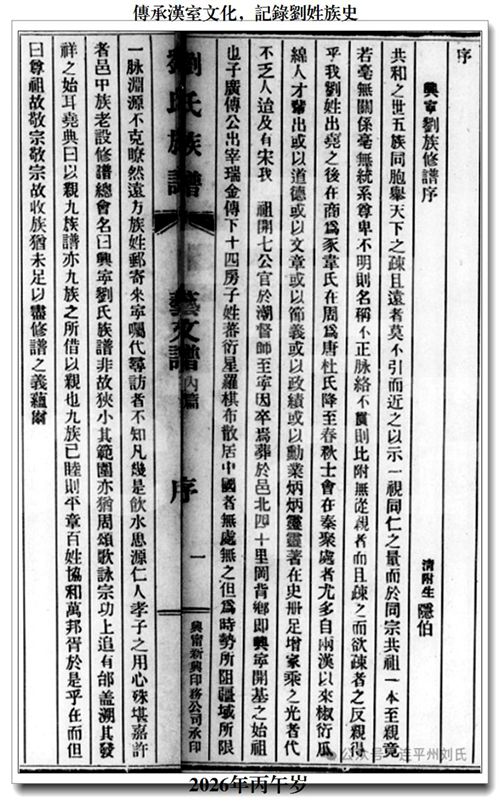 傳承漢室文化，記錄劉姓族史
序
興寧劉族修譜序
清附生 隱伯
共和之世五族同胞舉天下之疎且遠者莫不引而近之以示一視同仁之量而於同宗共祖一本至親竟
若毫無關係毫無統系尊卑不明則名稱不正脉絡不貫則比附無從親者而且疎之而欲疎者之反親得
乎我劉姓出堯之後在商爲豕韋氏在周爲唐杜氏降至春秋士會在秦聚處者尤多自兩漢以來椒衍瓜
綿人才輩出或以道德或以文章或以節義或以政績或以勳業炳炳靈靈著在史册足增家乘之光者代
不乏人迨及有宋我 祖開七公官於潮督師至寧因卒焉葬於邑北四十里岡背鄉即興寧開基之始祖
也子廣傳公出宰瑞金傳下十四房子姓蕃衍星羅棋布散居中國者無處無之但爲時勢所阻疆域所限
劉氏族譜 藝文譜 內篇 序 一 興甯新興印務公司承印
一脉淵源不克瞭然遠方族姓郵寄來寧囑代尋訪者不知凡幾是飲水思源仁人孝子之用心殊堪嘉許
者邑中族老設修譜總會名曰興寧劉氏族譜非故狹小其範圍亦猶周頌歌詠宗功上追有邰盖溯其發
祥之始耳堯典曰以親九族譜亦九族之所借以親也九族已睦則平章百姓協和萬邦胥於是乎在而但
曰尊祖故敬宗敬宗故收族猶未足以盡修譜之義蘊爾
公众号 连平州刘氏
2026年丙午岁